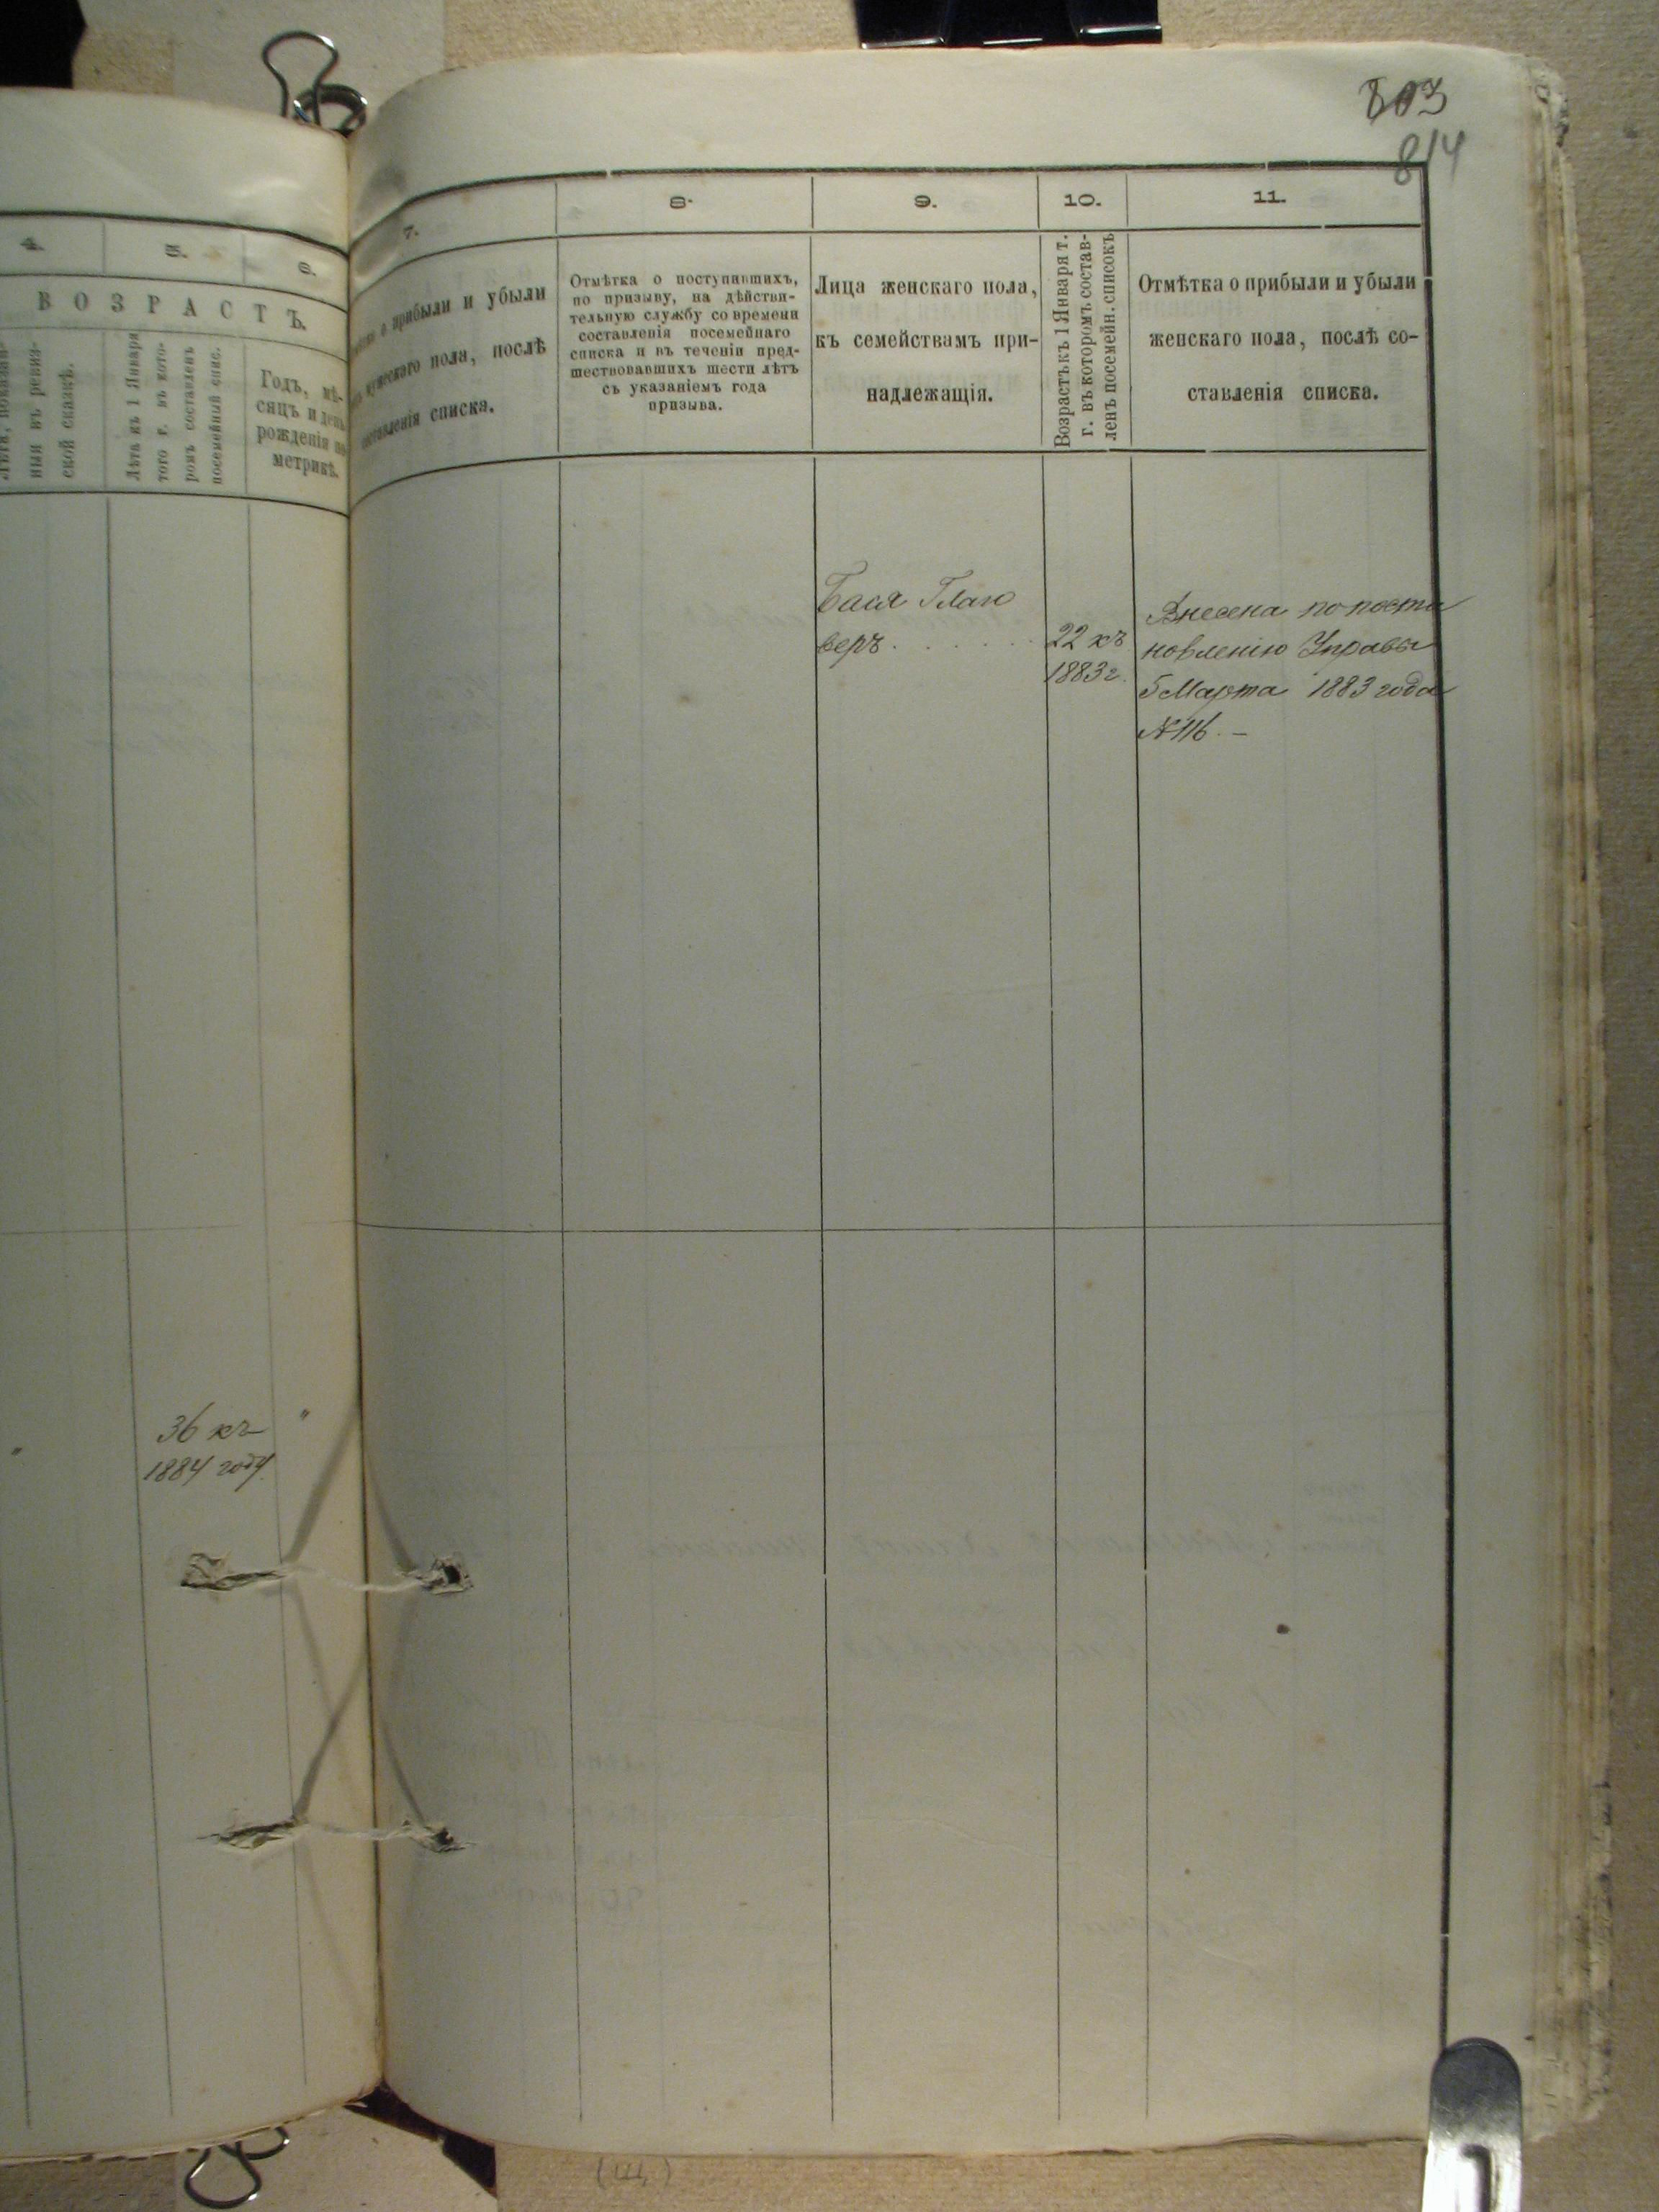 803
814
4.
5.
6.
ВОЗРАСТЪ.
ныя въ ревиз-
ской сказкѣ.
Лѣта къ 1 Января
того г. въ кото-
ромъ составленъ
посемейный спис.
Годъ, мѣ-
сяцъ и день
рожденія по
метрикѣ.
36 къ
1884 году.
"
"
7.
о прибыли и убыли
мужескаго пола, послѣ
составленія списка.
8.
Отмѣтка о поступившихъ,
по призыву, на дѣйстви-
тельную службу со времени
составленія посемейнаго
списка и въ теченіи пред-
шествовавшихъ шести лѣтъ
съ указаніемъ года
призыва.
9.
Лица женскаго пола,
къ семействамъ при-
надлежащія.
10.
Возрастъ къ 1 Января т.
г. въ которомъ состав-
ленъ посемейн. списокъ
11.
Отмѣтка о прибыли и убыли
женскаго пола, послѣ со-
ставленія списка.
Бася
веръ . . . . . .
22 къ
1883 г.
Внесена по поста
новленію Управы
5 Марта 1883 года
№ 116. —